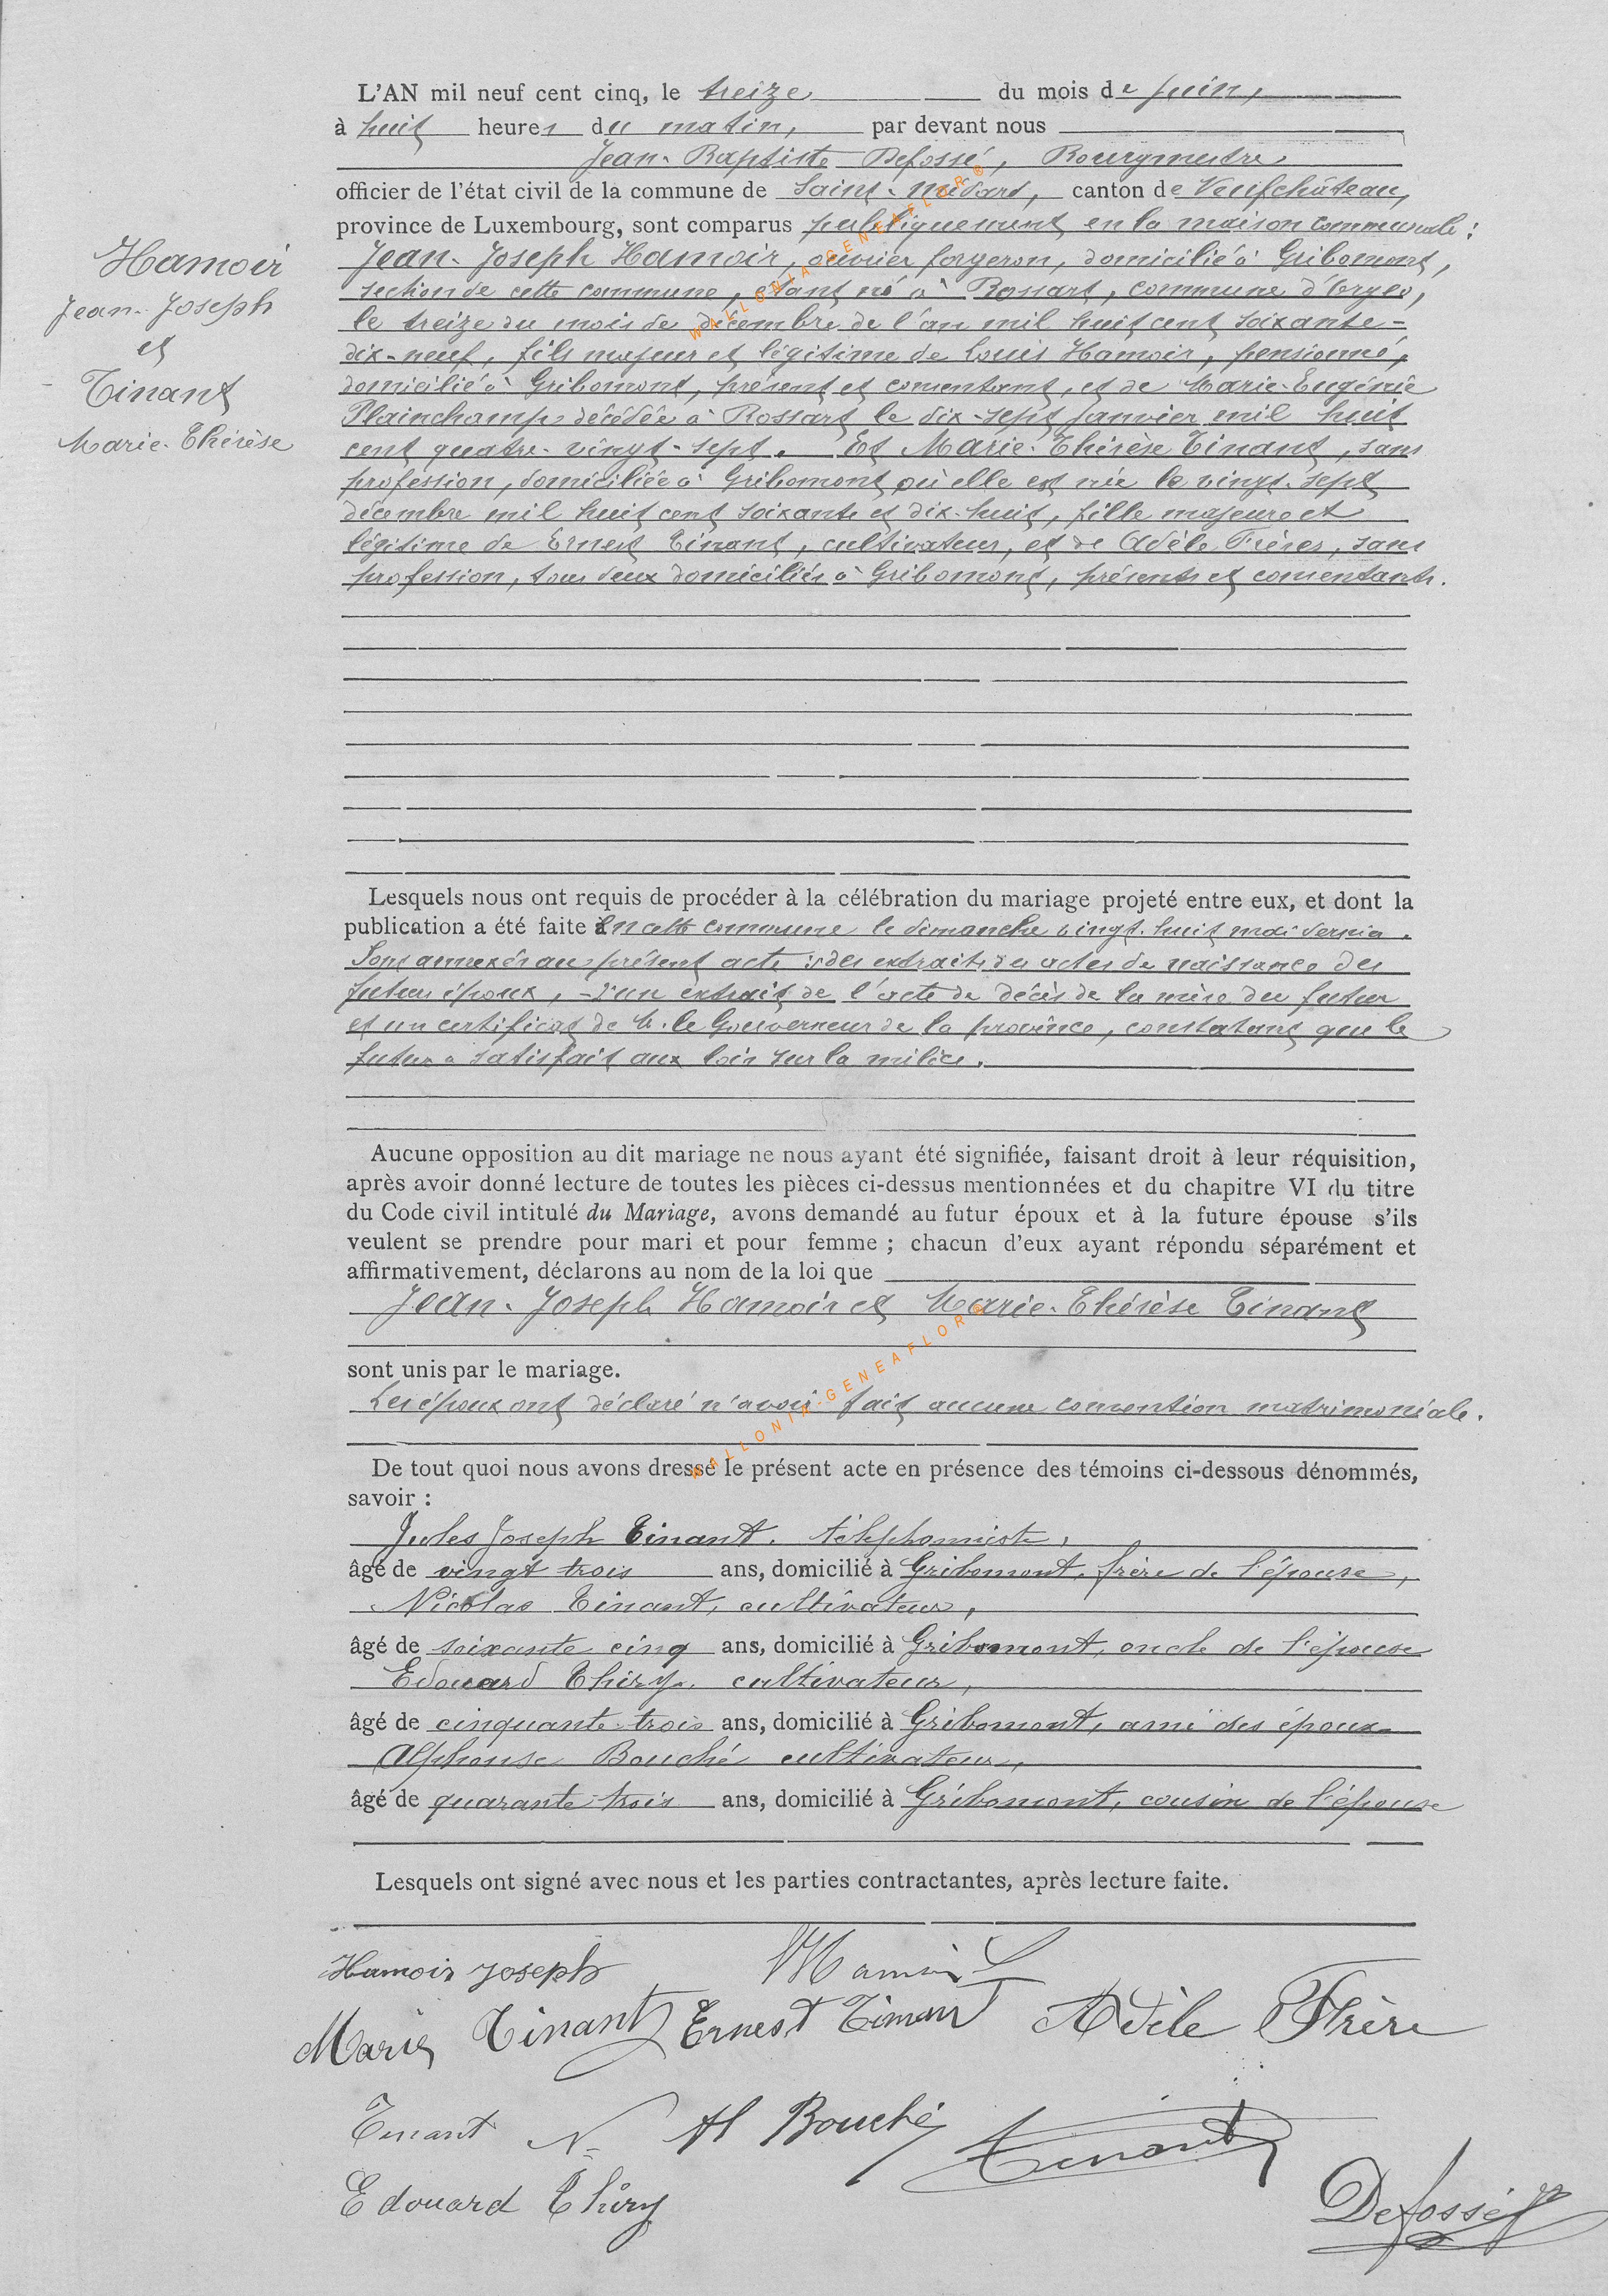 L'AN mil neuf cent cinq, le treize du mois de juin,
à huit heures du matin, par devant nous
Jean-Baptiste Defossé, Bourgmestre
officier de l'état civil de la commune de Saint-Médard, canton de Neufchâteau,
province de Luxembourg, sont comparus publiquement en la maison communale :
Hamoir
Jean-Joseph
et
Tinant
Marie-Thérèse
Jean-Joseph Hamoir, ouvrier forgeron, domicilié à Gribomont,
section de cette commune, étant né à Rossart, commune d'Orgeo,
le treize du mois de décembre de l'an mil huit cent soixante-
dix-neuf, fils majeur et légitime de Louis Hamoir, pensionné,
domicilié à Gribomont, présent et consentant, et de Marie-Eugénie
Plainchamp décédée à Rossart le dix-sept janvier mil huit
cent quatre-vingt-sept. Et Marie-Thérèse Tinant, sans
profession, domiciliée à Gribomont où elle est née le vingt-sept
décembre mil huit cent soixante et dix-huit, fille majeure et
légitime de Ernest Tinant, cultivateur, et de Adèle Frères, sans
profession, tous deux domiciliés à Gribomont, présents et consentants.
Lesquels nous ont requis de procéder à la célébration du mariage projeté entre eux, et dont la
publication a été faite en cette commune le dimanche vingt-huit mai dernier.
Sont annexés au présent acte : des extraits des actes de naissance des
futurs époux, d'un extrait de l'acte de décès de la mère du futur
et un certificat de M. le Gouverneur de la province, constatant que le
futur a satisfait aux lois sur la milice.
Aucune opposition au dit mariage ne nous ayant été signifiée, faisant droit à leur réquisition,
après avoir donné lecture de toutes les pièces ci-dessus mentionnées et du chapitre VI du titre
du Code civil intitulé du Mariage, avons demandé au futur époux et à la future épouse s'ils
veulent se prendre pour mari et pour femme ; chacun d'eux ayant répondu séparément et
affirmativement, déclarons au nom de la loi que
Jean-Joseph Hamoir et Marie-Thérèse Tinant
sont unis par le mariage.
Les époux ont déclaré n'avoir fait aucune convention matrimoniale.
De tout quoi nous avons dressé le présent acte en présence des témoins ci-dessous dénommés,
savoir :
Jules Joseph Tinant, téléphoniste,
âgé de vingt trois ans, domicilié à Gribomont, frère de l'épouse,
Nicolas Tinant, cultivateur,
âgé de soixante cinq ans, domicilié à Gribomont, oncle de l'épouse
Edouard Thiry, cultivateur,
âgé de cinquante-trois ans, domicilié à Gribomont, ami des époux
Alphonse Bouché cultivateur,
âgé de quarante trois ans, domicilié à Gribomont, cousin de l'épouse
Lesquels ont signé avec nous et les parties contractantes, après lecture faite.
Hamoir Joseph Hamoir L
Marie Tinant Ernest Tinant Adèle Frère
Tinant N Al Bouché Tinant
Edouard Thiry
Defossé
WALLONIA-GENEAFLOR®
WALLONIA-GENEAFLOR®